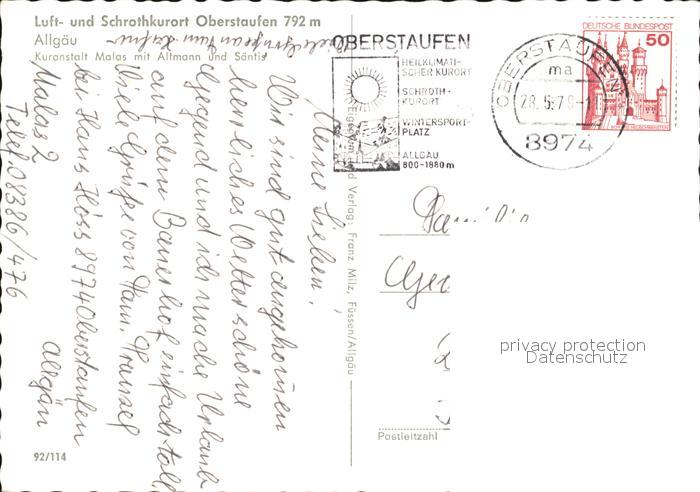 Luft- und Schrothkurort Oberstaufen 792 m
Allgäu
Kuranstalt Malas mit Altmann und Säntis
OBERSTAUFEN
HEILKLIMATI-
SCHER KURORT
SCHROTH-
KURORT
WINTERSPORT-
PLATZ
ALLGÄU
800-1880 m
OBERSTAUFEN
ma
28.5.79-1
8974
DEUTSCHE BUNDESPOST
50
Meine Lieben!
Wir sind gut angekommen
herrliches Wetter schöne
Gegend und ich mache Urlaub
auf dem Bauerhof einfach toll
Viele Grüße von Fam.
bei Hans Höss 8974 Oberstaufen
Malas 2 Allgäu
Telef 08386/476
Verlag Franz Milz, Füssen/Allgäu
Familie
Postleitzahl
92/114
privacy protection
Datenschutz